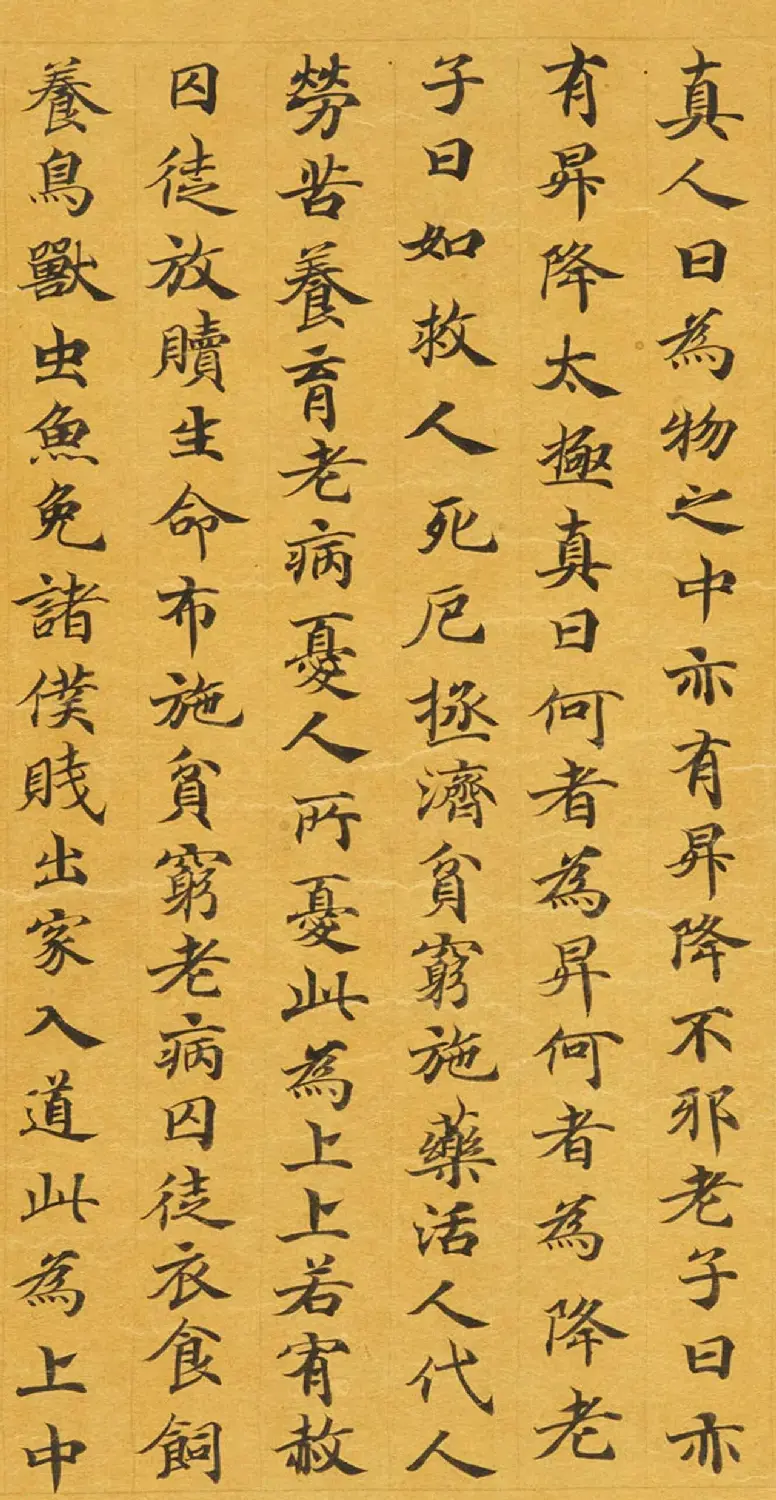 真人曰為物之中亦有昇降不邪老子曰亦
有昇降太極真曰何者為昇何者為降老
子曰如救人死厄拯濟貧窮施藥活人代人
勞苦養育老病憂人所憂此為上上若宥赦
囚徒放贖生命布施貧窮老病囚徒衣食飼
養鳥獸虫魚免諸僕賤出家入道此為上中